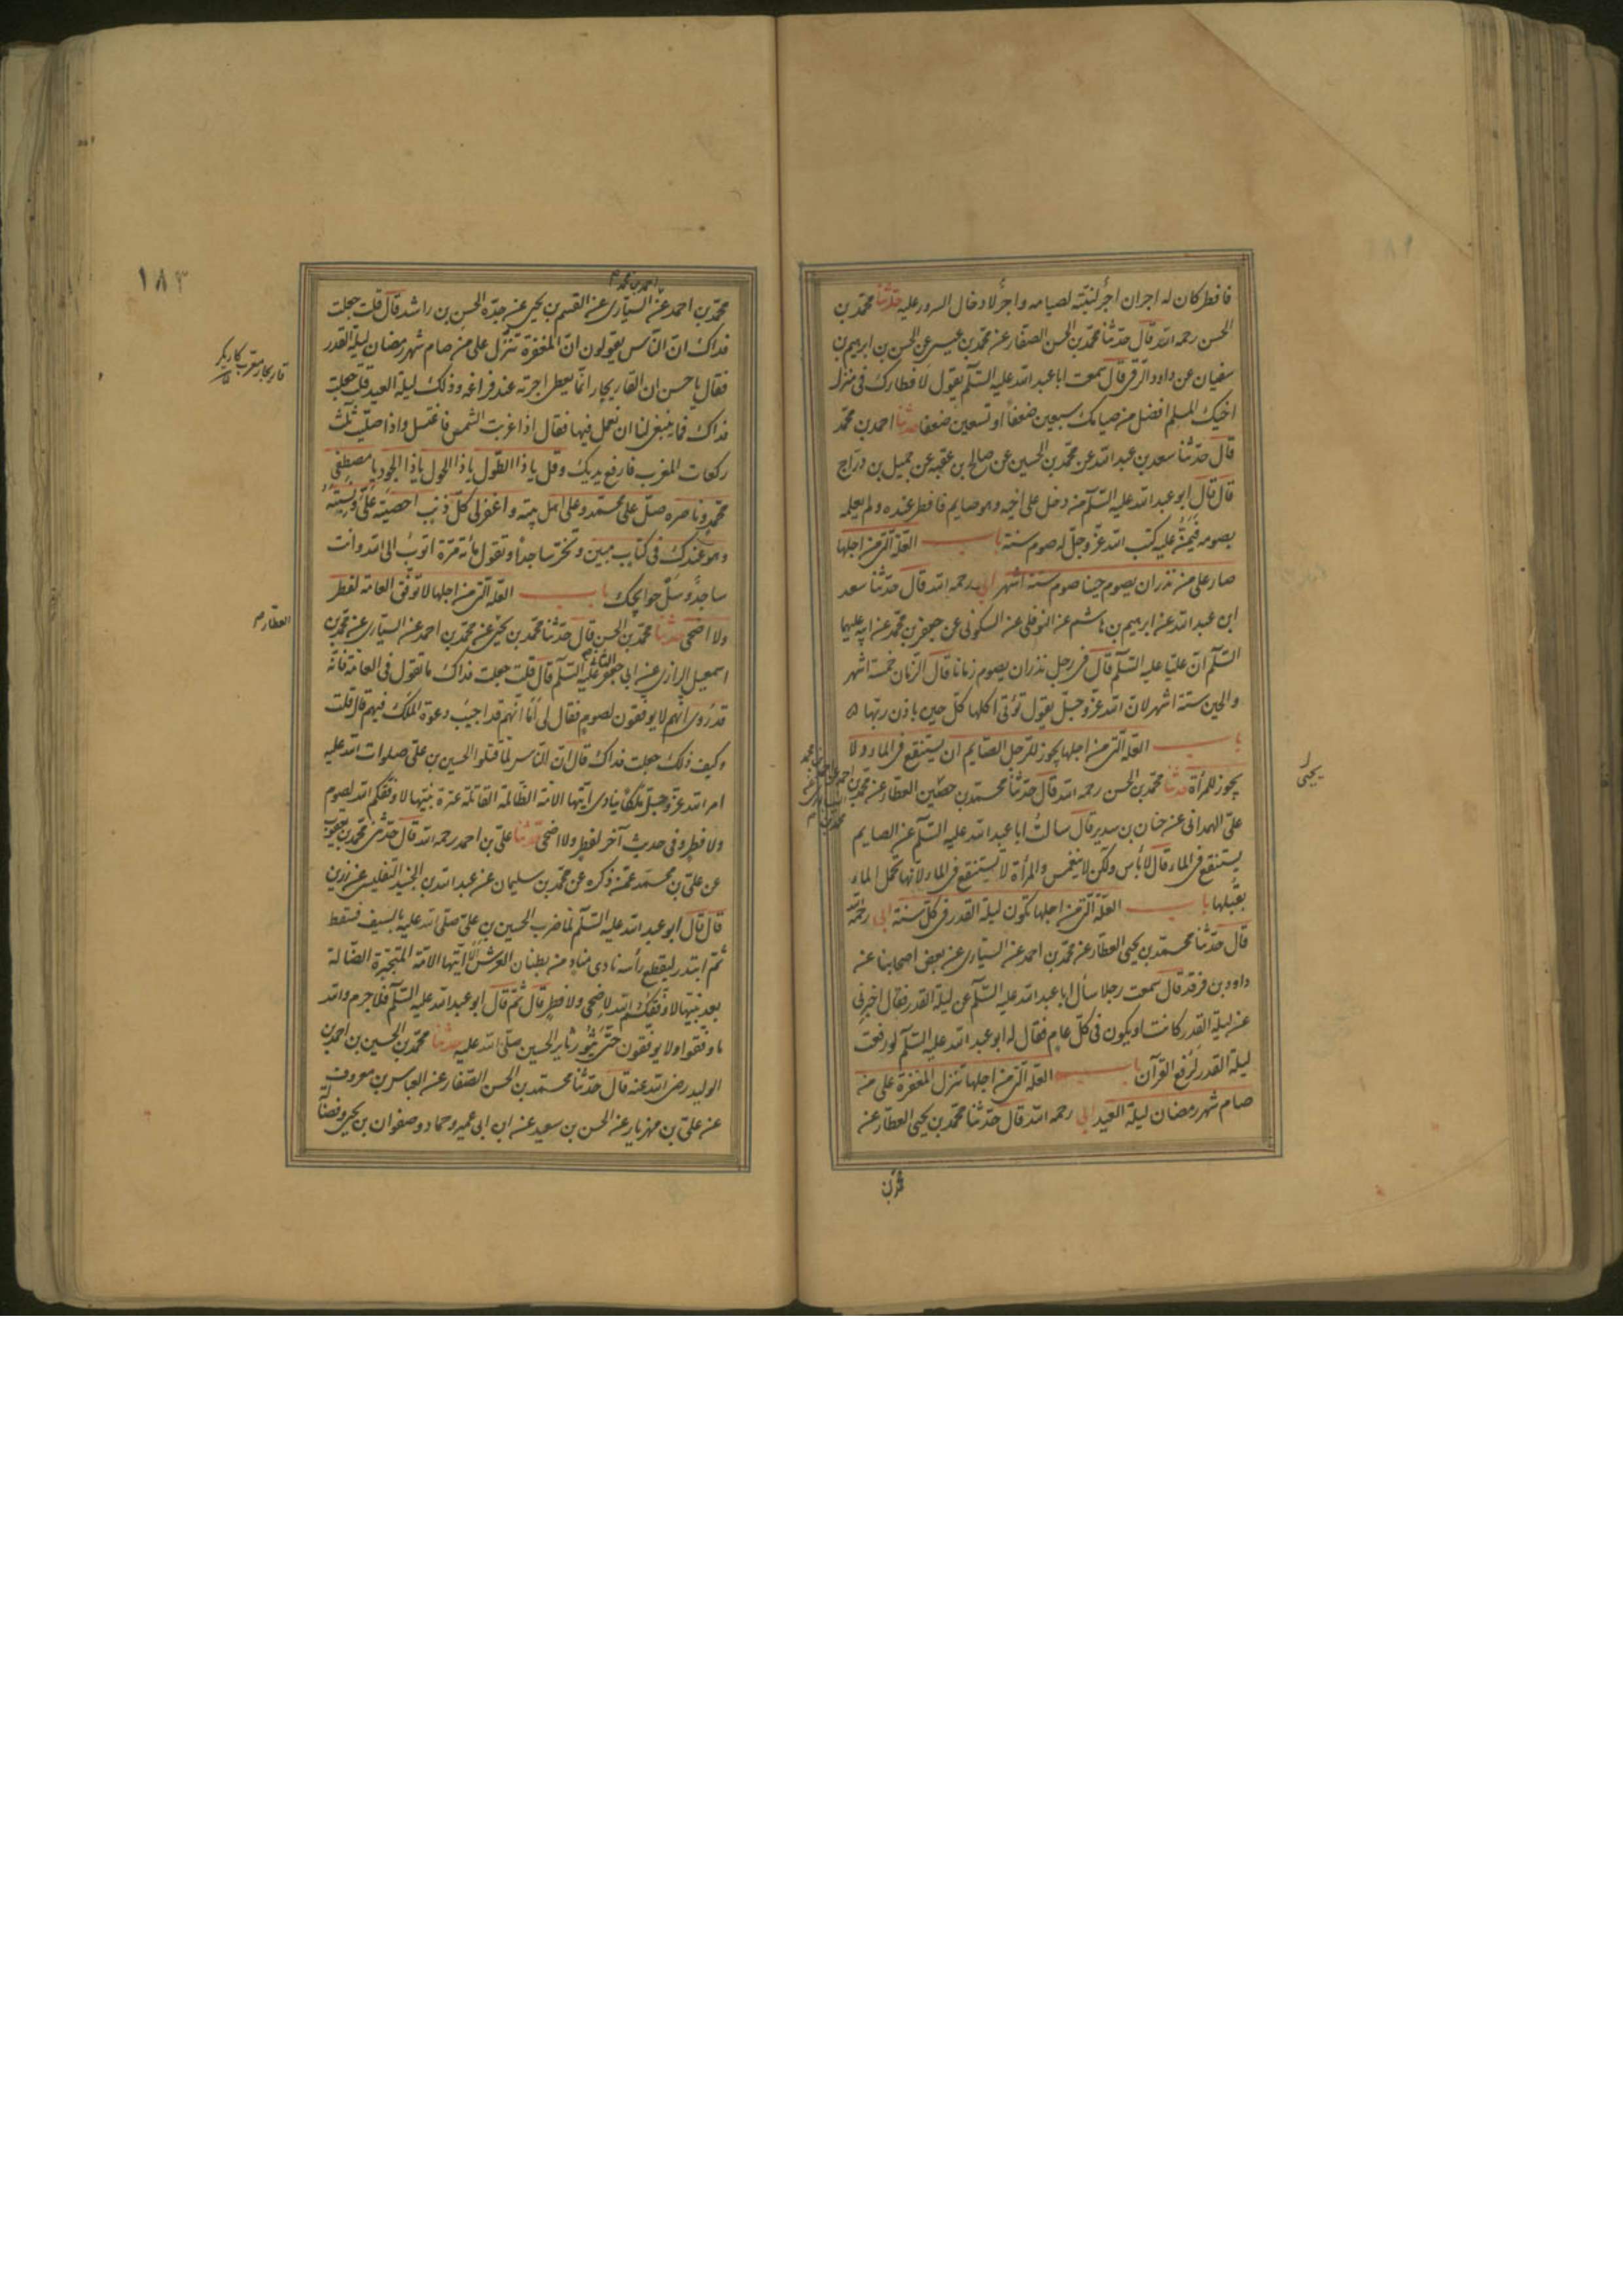 فافطر كان له اجران اجرٌ لنيّته لصيامه واجرٌ لادخال السرور عليه حدّثنا محمّد بن
الحسن رحمه الله قال حدّثنا محمّد بن الحسن الصفّار عن محمّد بن عيسى عن الحسن بن ابرهيم بن
سفيان عن داود الرقى قال سمعت ابا عبد الله عليه السّلم يقول لافطارك فى منزل
اخيك المسلم افضل من صيامك سبعين ضعفاً او تسعين ضعفا حدثنا احمد بن محمّد
قال حدّثنا سعد بن عبد الله عن محمّد بن الحسين عن صالح بن عقبه عن جميل بن درّاج
قال قال ابو عبد الله عليه السّلم من دخل على اخيه وهو صايم فافطر عنده ولم يعلمه
بصومه فيمُنّ عليه كتب الله عزّ وجلّ له صوم سنة باب العلة التى من اجلها
صار على من نذر ان يصوم حينا صوم ستة اشهر ابى رحمه الله قال حدّثنا سعد
ابن عبد الله عن ابرهيم بن هاشم عن النوفلى عن السكونى عن جعفر بن محمّد عن ابيه عليهما
السّلم انّ عليّا عليه السّلم قال فى رجل نذر ان يصوم زمانا قال الزّمان خمسة اشهر
والحين ستة اشهر لانّ الله عزّ وجلّ يقول تؤتى اكلها كلّ حين باذن ربّها
باب العلة التى من اجلها يجوز للرّجل الصّايم ان يستنقع فى الماء ولا
يجوز للمرأة حدثنا محمّد بن الحسن رحمه الله قال حدّثنا محمّد بن العطار عن محمّد بن
يحيى
علىّ الهمدانى عن حنان بن سدير قال سالتُ ابا عبد الله عليه السّلم عن الصايم
يستنقع فى الماء قال لا بأس ولكن لا ينغمس والمرأة لا تستنقع فى الماء لانّها تحمل الماء
بقبُلها باب العلّة التى من اجلها تكون ليلة القدر فى كلّ سنة ابى رحمه الله
قال حدّثنا محمّد بن يحيى العطّار عن محمّد بن احمد عن السيّارى عن بعض اصحابنا عن
داود بن فرقد قال سمعت رجلا سأل ابا عبد الله عليه السّلم عن ليلة القدر فقال اخبرنى
عن ليلة القدر كانت او يكون فى كلّ عام فقال له ابو عبد الله عليه السّلم لو رفعت
ليلة القدر لرُفع القرآن باب العلة التى من اجلها تنزل المغفرة على من
صام شهر رمضان ليلة العيد ابى رحمه الله قال حدّثنا محمّد بن يحيى العطّار عن
١٨٣
محمّد بن احمد عن السيّارى عن القسم بن يحيى عن جدّه الحسن بن راشد قال قلت جعلت
فداك انّ النّاس يقولون انّ المغفرة تنزّل على من صام شهر رمضان ليلة القدر
قاريجار معرب كاريكر
فقال يا حسن ان القاريجار انّما يعطى اجرته عند فراغه وذلك ليلة العيد قلت جعلت
فداك فما ينبغى لنا ان نعمل فيها فقال اذا غربت الشمس فاغتسل واذا صلّيت ثلث
ركعات المغرب فارفع يديك وقل يا ذا الطّول يا ذا الحول يا ذا الجود يا مصطفى
محمّد وناصره صلّ على محمّد وعلى اهل بيته واغفر لى كلّ ذنب احصيته علىّ ونسيته
وهو عندك فى كتاب مبين وتخرّ ساجداً وتقول مائة مرّة اتوبُ الى الله وانت
ساجدٌ وسل حوايجك باب العلة التى من اجلها لا توفّق العامة لفطر
العطار م
ولا اضحى حدثنا محمّد بن الحسن قال حدّثنا محمّد بن يحيى عن محمّد بن احمد عن السيّارى عن محمّد بن
اسمعيل الرازى عن ابى جعفر الثانى عليه السّلم قال قلت جعلت فداك ما تقول فى العامّة فانّه
قد روى انّهم لا يوفقون لصوم فقال لى اما انّهم قد اجيبت دعوة الملك فيهم قال قلت
وكيف ذلك جعلت فداك قال انّ النّاس لمّا قتلوا الحسين بن علىّ صلوات الله عليه
امر الله عزّ وجلّ ملكاً ينادى ايّتها الامّة الظّالمة القاتلة عترة نبيّها لا وفّقكم الله لصوم
ولا فطر وفى حديث آخر لفطر ولا اضحى حدّثنا علىّ بن احمد رحمه الله قال حدّثنى محمّد بن يعقوب
عن علىّ بن محمّد عمّن ذكره عن محمّد بن سليمان عن عبد الله بن الجنيد التفليسى عن رزين
قال قال ابو عبد الله عليه السّلم لمّا ضرب الحسين بن علىّ صلّى الله عليه بالسيف فسقط
ثمّ ابتدر ليقطع رأسه نادى منادٍ من بطنان العرش الا ايّتها الامّة المتجبّرة الضّالة
بعد نبيّها لا وفّقكم الله لاضحى ولا فطر قال ثمّ قال ابو عبد الله عليه السّلم فلا جرم والله
ما وفّقوا ولا يوفّقون حتّى يثور ثاير الحسين صلّى الله عليه حدثنا محمّد بن الحسين بن احمد بن
الوليد رضى الله عنه قال حدّثنا محمّد بن الحسن الصّفار عن العباس بن معروف
عن علىّ بن مهزيار عن الحسن بن سعيد عن ابن ابى عمير وحماد وصفوان بن يحيى وفضالة